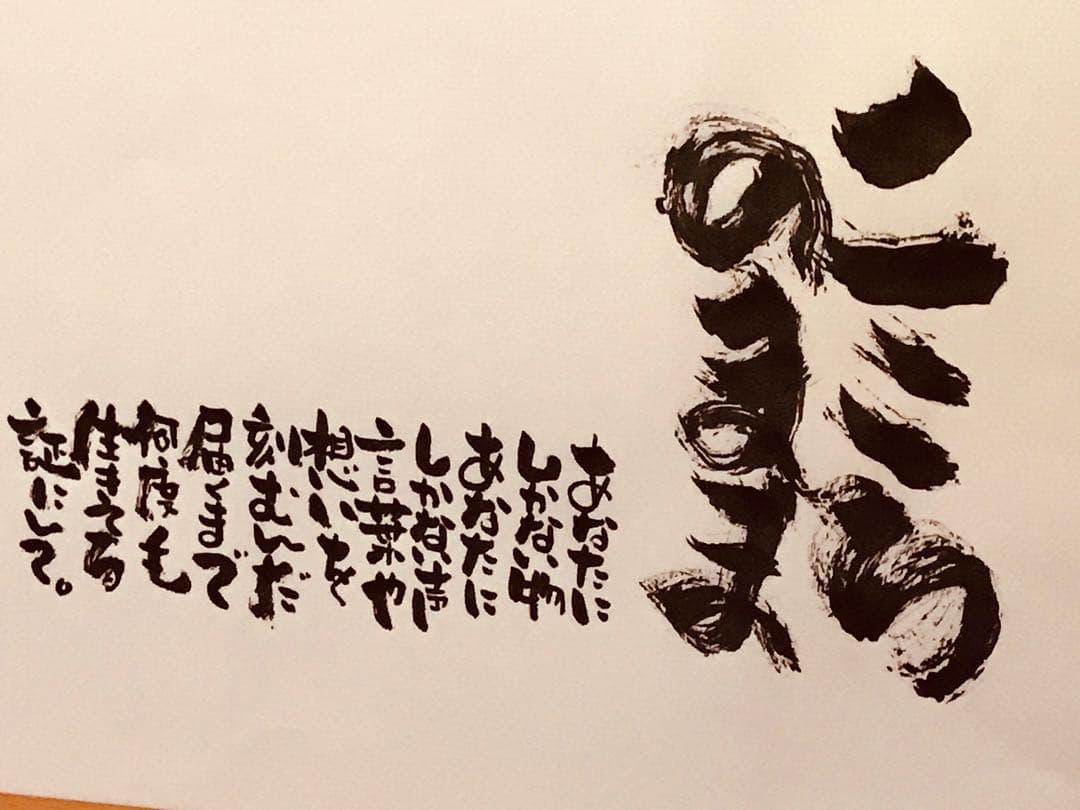 こころ
のまま
あなたに
しかない物
あなたに
しかない声
言葉や
想いを
刻むんだ
届くまで
何度も
生きてる
証にして。